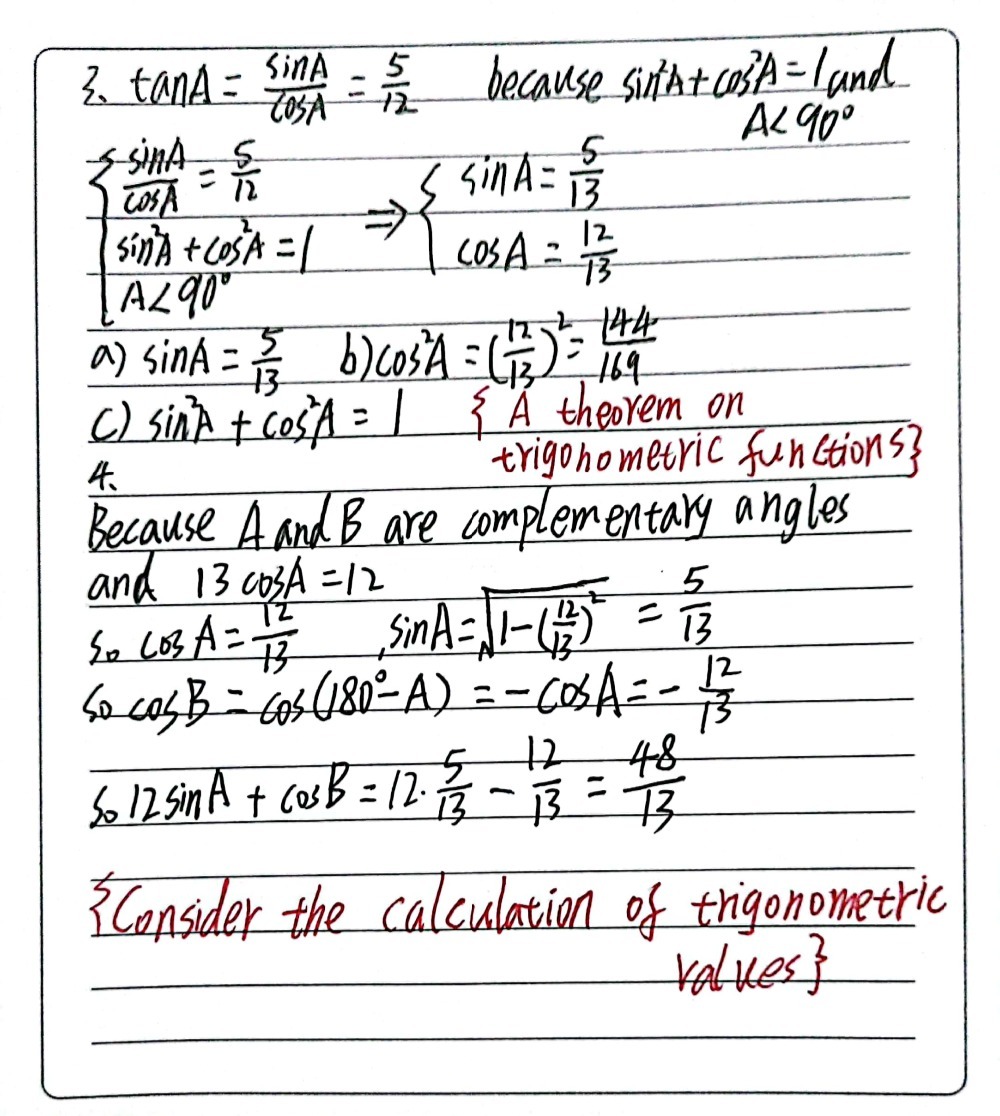 3. tanA = sinA/cosA = 5/12 because sin²A + cos²A = 1 and
A < 90°
{ sinA/cosA = 5/12
sin²A + cos²A = 1
A < 90°
⇒ { sinA = 5/13
cosA = 12/13
a) sinA = 5/13 b) cos²A = (12/13)² = 144/169
c) sin²A + cos²A = 1 { A theorem on
trigonometric functions}
4.
Because A and B are complementary angles
and 13 cosA = 12
so cosA = 12/13 , sinA = √(1-(12/13)²) = 5/13
so cosB = cos(180°-A) = -cosA = -12/13
so 12sinA + cosB = 12·5/13 - 12/13 = 48/13
{Consider the calculation of trigonometric
values}